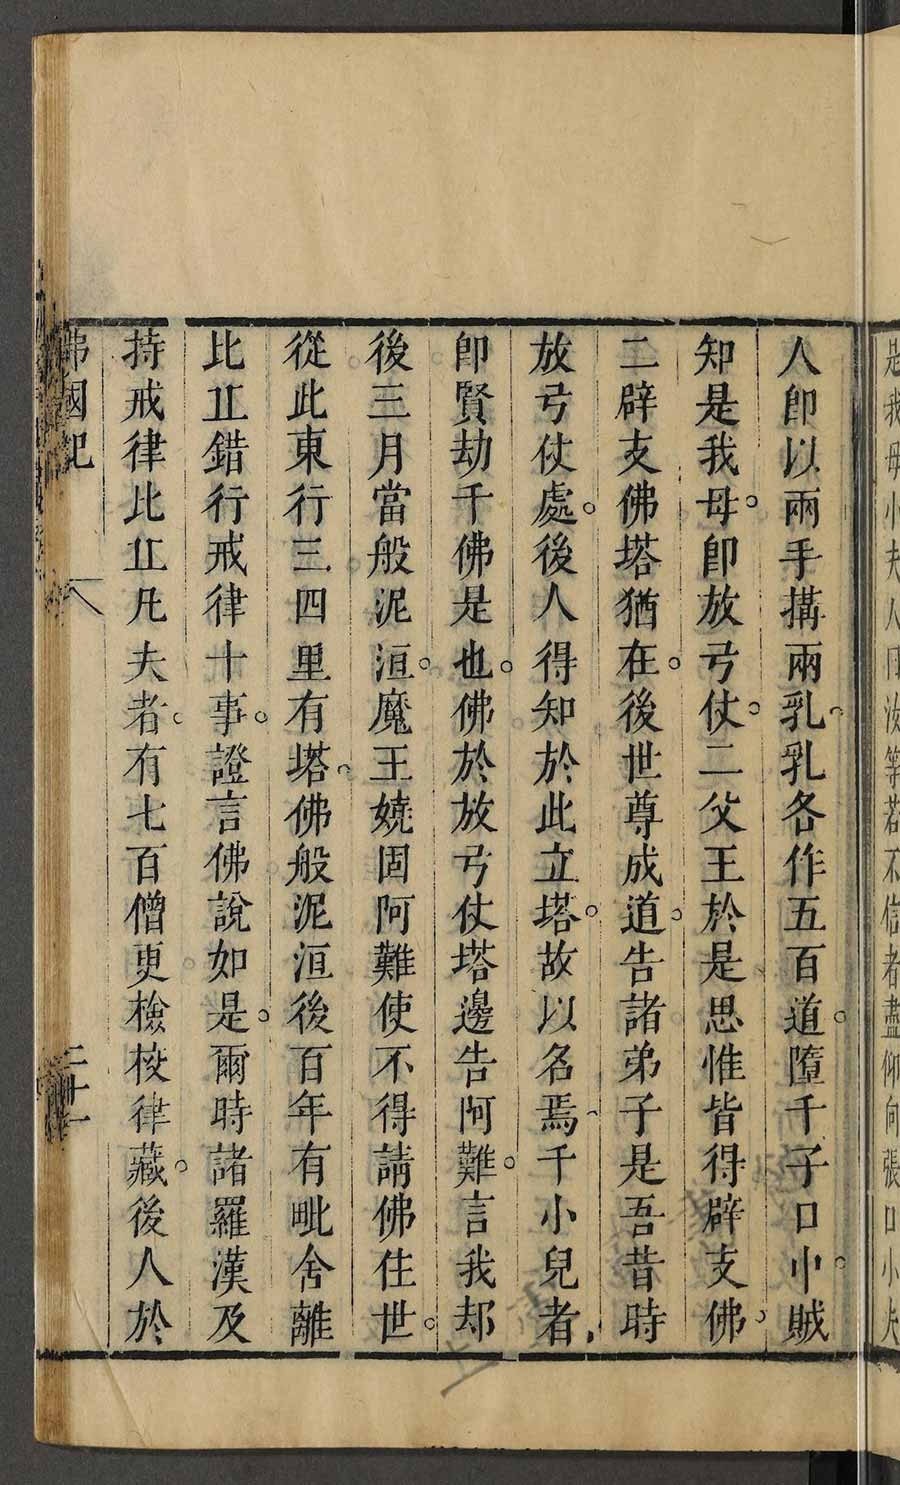 是我母小夫人曰汝等若不信者盡仰向張口小夫
人卽以兩手搆兩乳。乳各作五百道。墮千子口中。賊
知是我母。卽放弓仗。二父王於是思惟皆得辟支佛。
二辟支佛塔猶在。後世尊成道。告諸弟子是吾昔時
放弓仗處。後人得知於此立塔。故以名焉。千小兒者。
卽賢劫千佛是也。佛於放弓仗塔邊告阿難。言我却
後三月當般泥洹。魔王嬈固阿難使不得請佛住世。
從此東行三四里有塔。佛般泥洹後百年有毗舍離
比丘錯行戒律十事。證言佛說如是。爾時諸羅漢及
持戒律比丘凡夫者。有七百僧更檢校律藏。後人於
佛國記 八 二十一